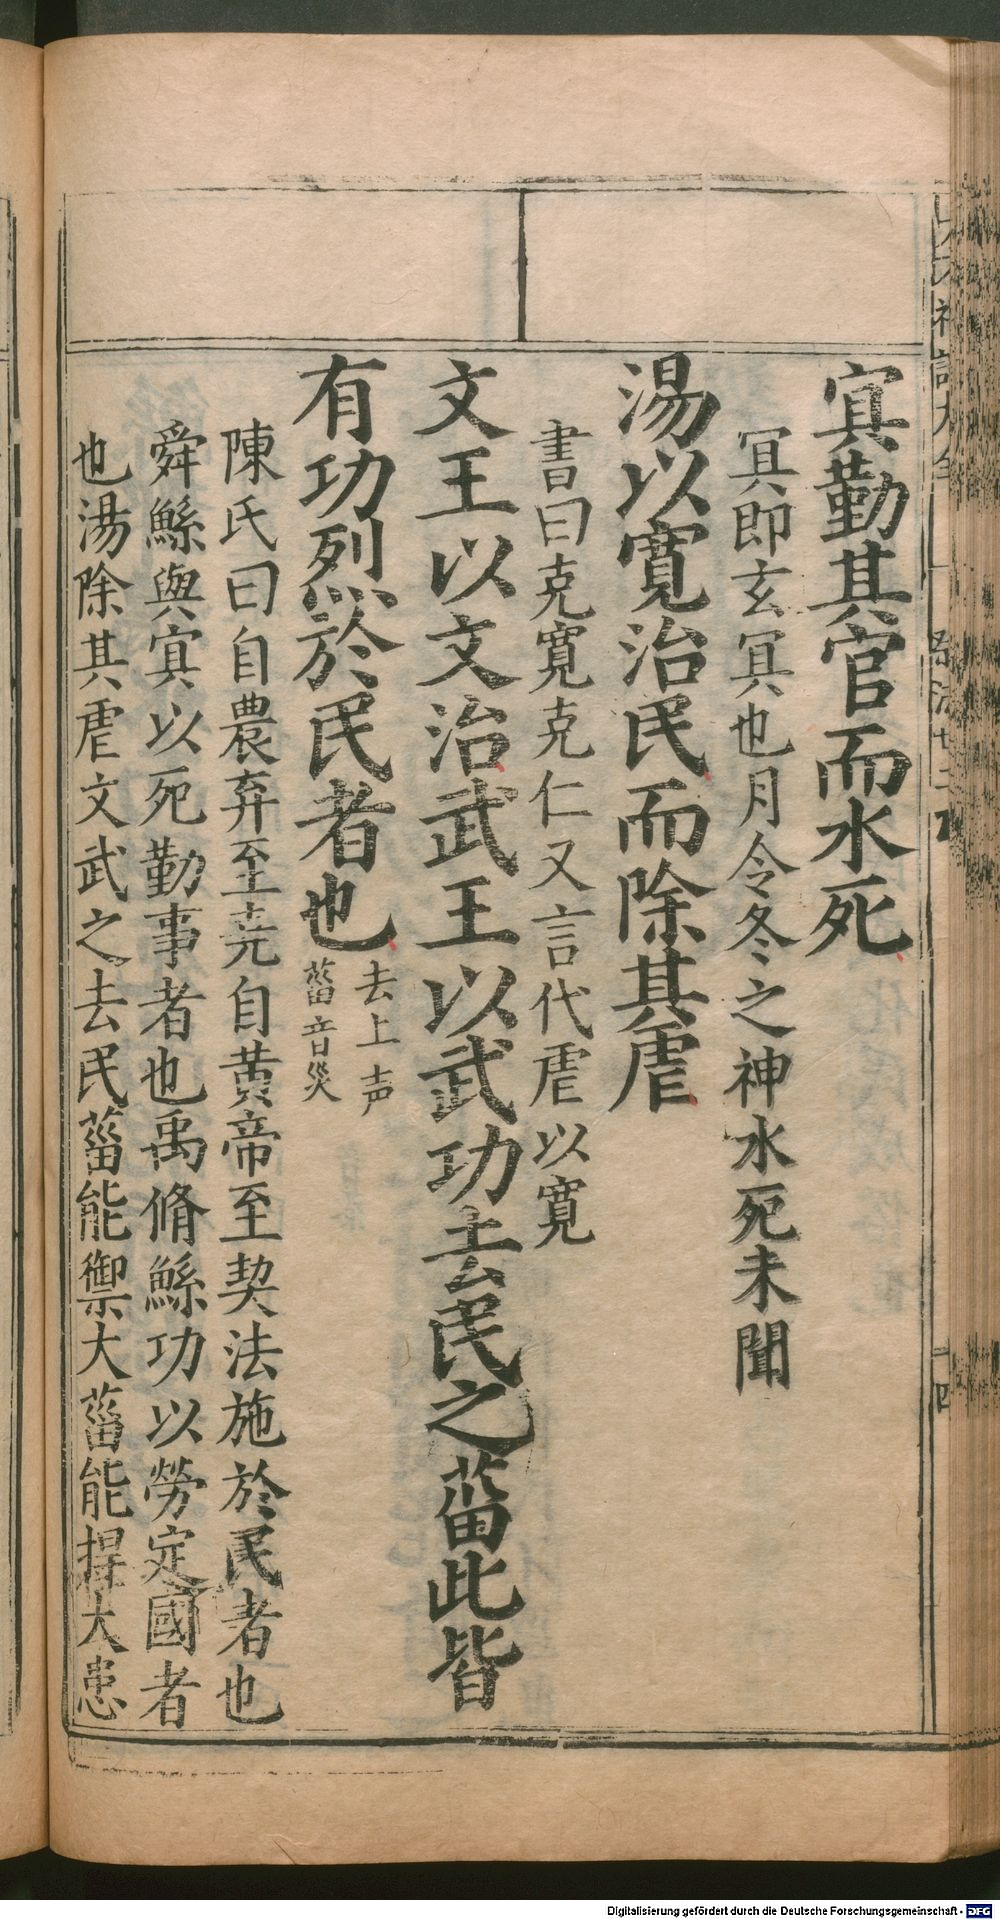 冥勤其官而水死
冥即玄冥也月令冬之神水死未聞
湯以寬治民而除其虐
書曰克寬克仁又言代虐以寬
文王以文治武王以武功去民之菑此皆
有功烈於民者也
去上声
菑音災
陳氏曰自農弃至堯自黃帝至契法施於民者也
舜鯀與冥以死勤事者也禹脩鯀功以勞定國者
也湯除其虐文武之去民菑能禦大菑能捍大患
Digitalisierung gefördert durch die Deutsche Forschungsgemeinschaft - DFG